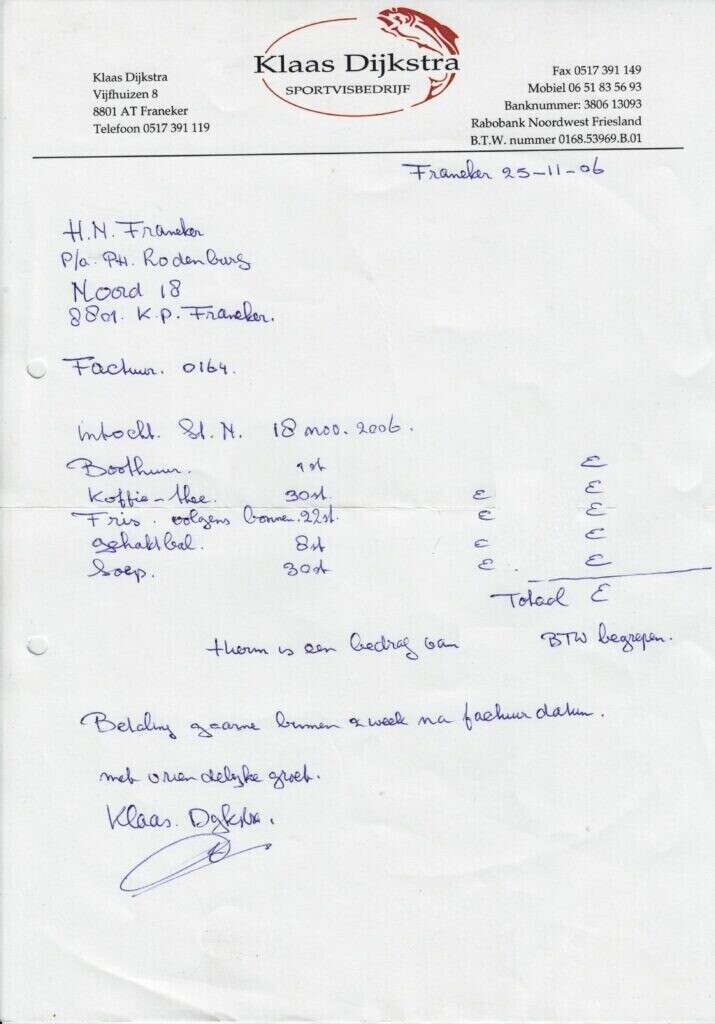 Klaas Dijkstra
SPORTVISBEDRIJF
Klaas Dijkstra
Vijfhuizen 8
8801 AT Franeker
Telefoon 0517 391 119
Fax 0517 391 149
Mobiel 06 51 83 56 93
Banknummer: 3806 13093
Rabobank Noordwest Friesland
B.T.W. nummer 0168.53969.B.01
Franeker 25-11-06
H.N. Franeker
P/a. PH. Rodenburg
Noord 18
8801. K.P. Franeker.
Factuur. 0164.
intocht. St. N. 18 nov. 2006.
Boothuur. 1st €
Koffie-thee. 30st € €
Fris. volgens bonnen. 22st. € €
gehaktbal. 8st € €
Soep. 30st € . €
Totaal €
Hierin is een bedrag van BTW begrepen.
Betaling gaarne binnen 2 week na factuur datum.
met vriendelijke groet.
Klaas. Dijkstra.